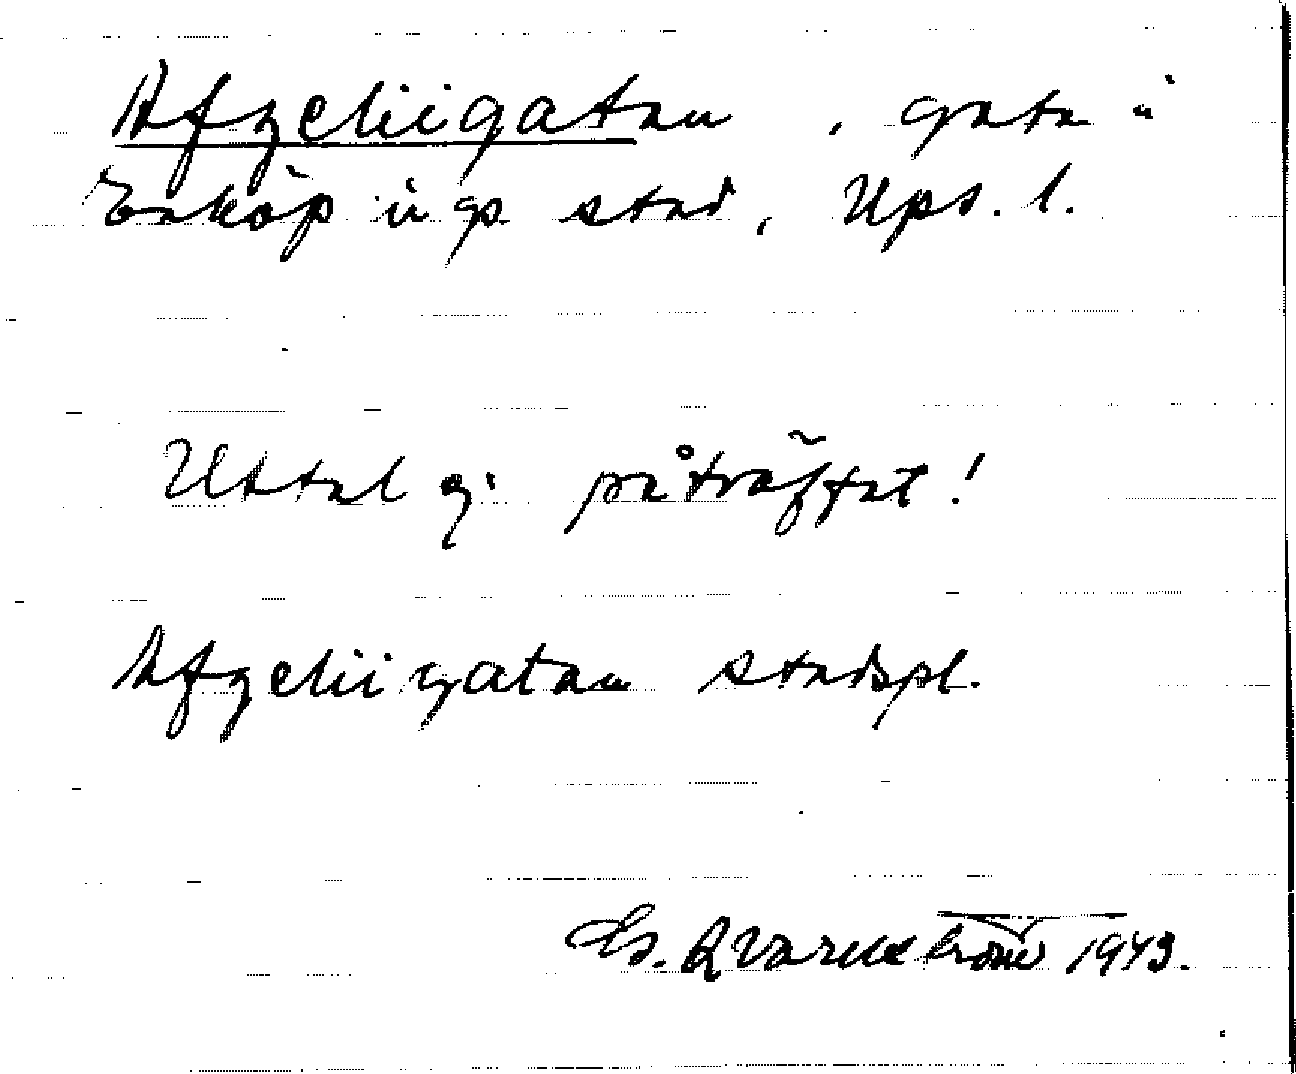 Afzeliigatan, gata i
Enköpings stad, Ups. l.
Uttal ej påträffat!
Afzeliigatan stadspl.
Qvarnström 1943.